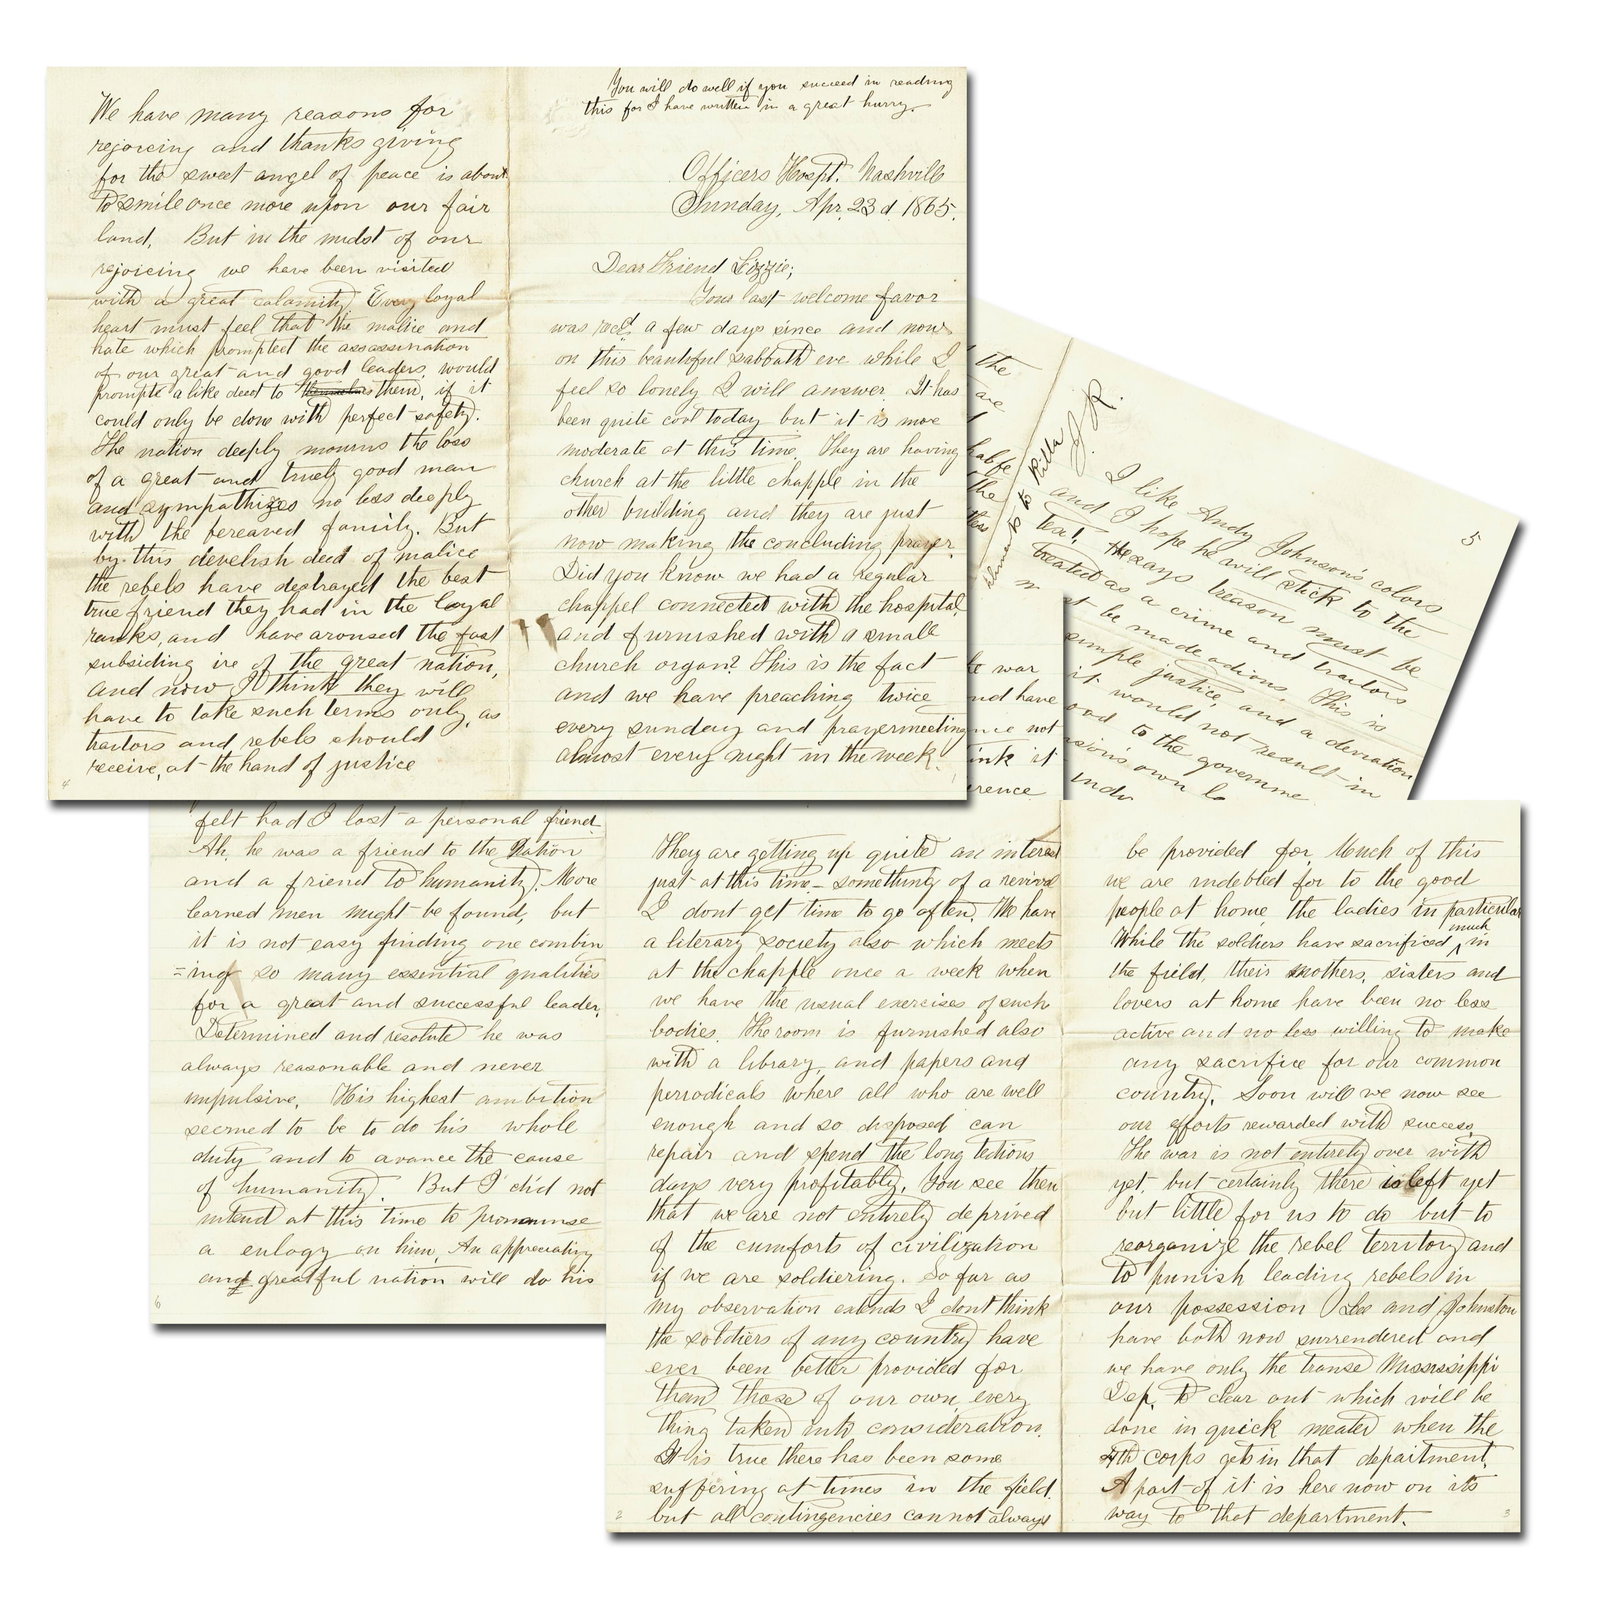 You will do well if you succeed in reading
this for I have written in a great hurry.
Officers Hospt. Nashville
Sunday, Apr. 23d 1865.
Dear Friend Lizzie;
Your last welcome favor
was recd a few days since and now
on this beautiful sabbath eve while I
feel so lonely I will answer. It has
been quite cool today but it is more
moderate at this time. They are having
church at the little chapple in the
other building and they are just
now making the concluding prayer.
Did you know we had a regular
chappel connected with the hospital
and furnished with a small
church organ? This is the fact
and we have preaching twice
every sunday and prayermeeting
almost every night in the week.
They are getting up quite an interest
just at this time - something of a revival
I dont get time to go often. We have
a literary society also which meets
at the chapple once a week when
we have the usual exercises of such
bodies. The room is furnished also
with a library, and papers and
periodicals where all who are well
enough and so disposed can
repair and spend the long tedious
days very profitably. You see then
that we are not entirely deprived
of the cumforts of civilization
if we are soldiering. So far as
my observation extends I dont think
the soldiers of any country have
ever been better provided for
than those of our own, every
thing taken into consideration.
It is true there has been some
suffering at times in the field.
but all contingencies cannot always
2
be provided for. Much of this
we are indebted for to the good
people at home, the ladies in particular
While the soldiers have sacrificed much in
the field, their mothers, sisters and
lovers at home have been no less
active and no less willing to make
any sacrifice for our common
country. Soon will we now see
our efforts rewarded with success.
The war is not entirely over with
yet, but certainly there is left yet
but little for us to do but to
reorganize the rebel territory and
to punish leading rebels in
our possession Lee and Johnston
have both now surrendered and
we have only the transe Mississippi
Dep. to clear out which will be
done in quick meater when the
4th corps gets in that department.
A part of it is here now on its
way to that department.
3
We have many reasons for
rejoicing and thanks giving
for the sweet angel of peace is about
to smile once more upon our fair
land. But in the midst of our
rejoicing we have been visited
with a great calamity Every loyal
heart must feel that the malice and
hate which prompted the assassination
of our great and good leaders, would
prompte a like deed to them, if it
could only be done with perfect safety.
The nation deeply mourns the loss
of a great and truely good man
and sympathizes no less deeply
with the bereaved family. But
by this develish deed of malice
the rebels have destrayed the best
true friend they had in the loyal
ranks, and have aroused the fast
subsiding ire of the great nation,
and now I think they will
have to take such terms only, as
traitors and rebels should
receive, at the hand of justice
4
5
I like Andy Johnson's colors
and I hope he will stick to the
text, He says treason must be
treated as a crime and traitors
t be made odious. This is
simple justice, and a deviation
it would not result in
ood to the governme
own lo
the
are
half
the
to Rilla
J. R.
war
nd have
nce not
ink it
erence
felt had I lost a personal friend.
Ah, he was a friend to the Nation
and a friend to humanity. More
learned men might be found, but
it is not easy finding one combin
=ing so many essential qualities
for a great and successful leader.
Determined and resolute he was
always reasonable and never
impulsive. His highest ambition
seemed to be to do his whole
duty and to avance the cause
of humanity. But I did not
intend at this time to pronounse
a eulogy on him. An appreciating
and greatful nation will do his
6